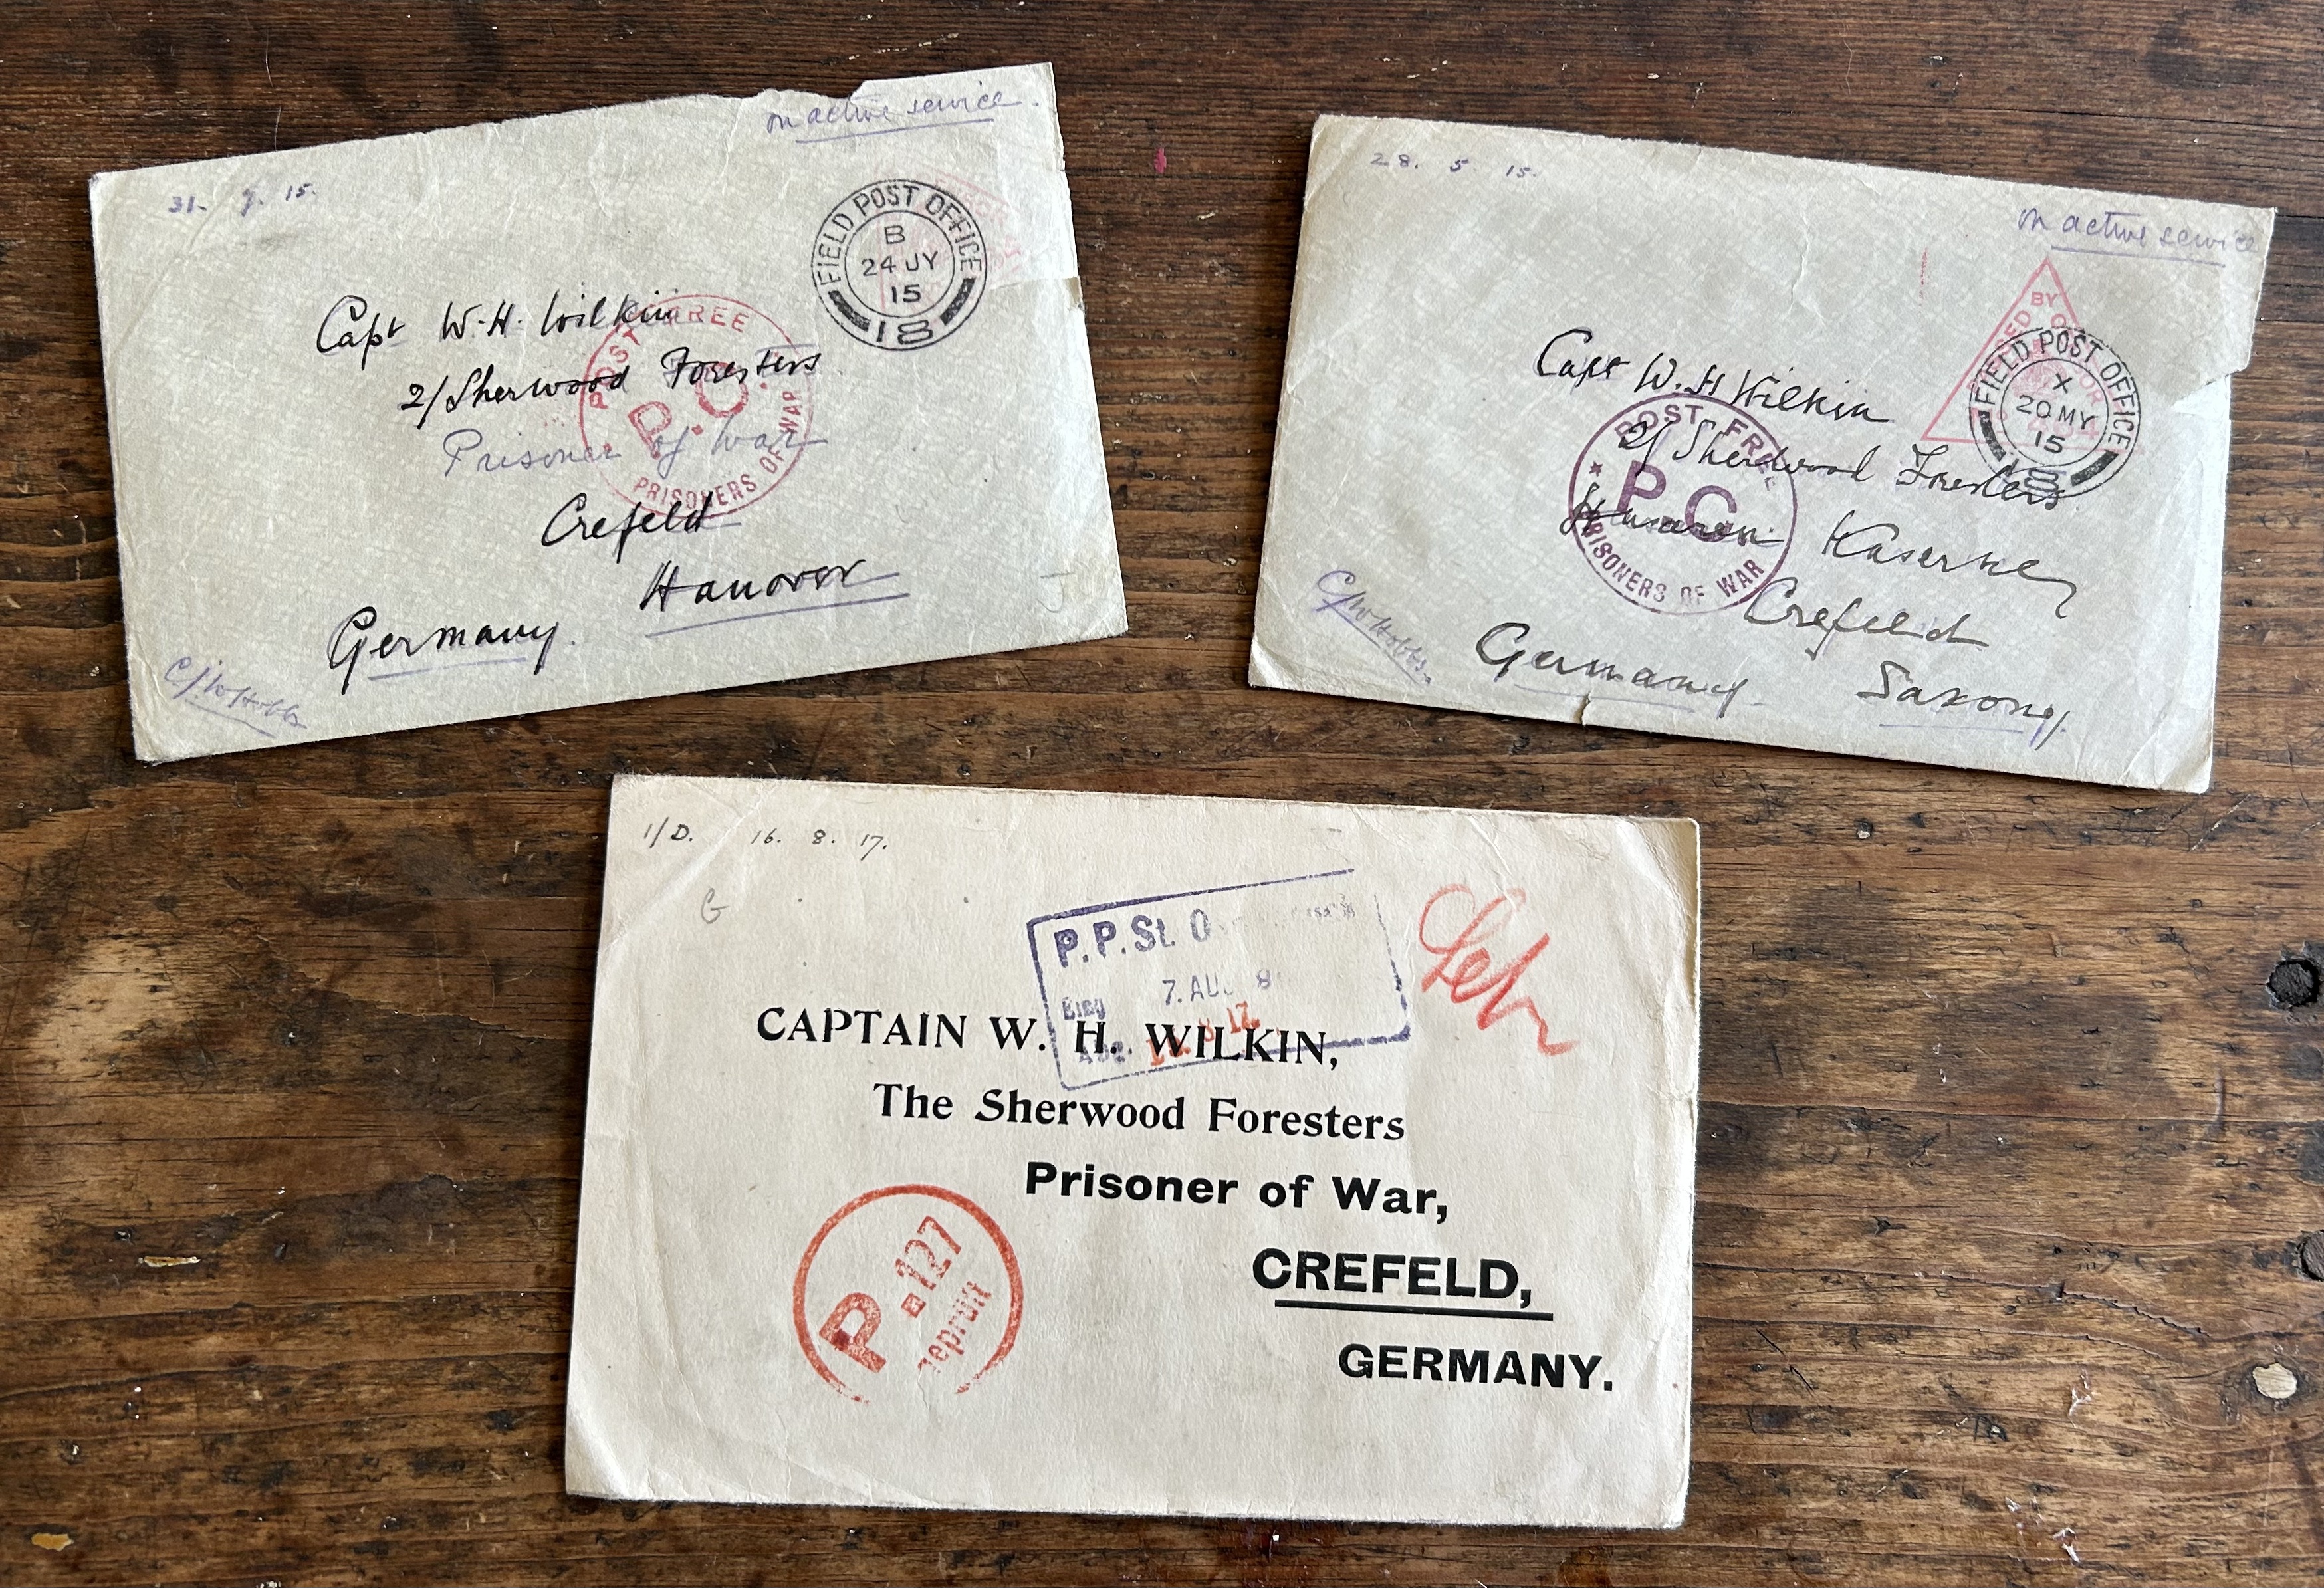 on active service.
31. 7. 15.
FIELD POST OFFICE
B
24 JY
15
18
Capt W.H. Wilkin
2/Sherwood Foresters
Prisoner of War
Crefeld
Hanover
Germany.
C/WHobbs
POST FREE
P.C.
PRISONERS OF WAR
J
28. 5 15.
on active service
BY
FIELD POST OFFICE
X
20 MY
15
Capt W.H Wilkin
2/Sherwood Foresters
Kaserne
Crefeld
Saxony.
Germany.
C/WHobbs.
POST FREE
P.C.
PRISONERS OF WAR
1/D. 16. 8. 17.
G
P.P.St.
Eing 7. AUG 8
CAPTAIN W. H. WILKIN,
The Sherwood Foresters
Prisoner of War,
CREFELD,
GERMANY.
P. 127
geprüft